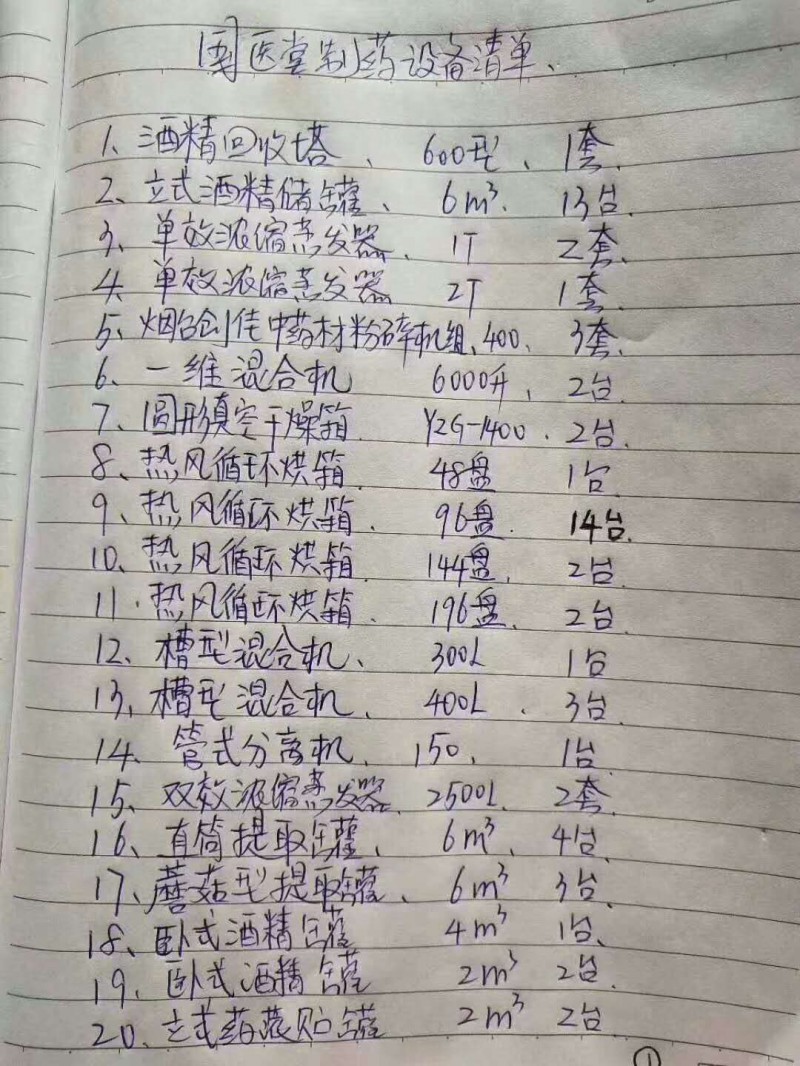 国医堂制药设备清单、
1、酒精回收塔、 600型、 1套.
2、立式酒精储罐、 6m³. 13台.
3、单效浓缩蒸发器、 1T 2套.
4、单效浓缩蒸发器 2T 1套.
5、烟台创佳中药材粉碎机组、400、 3套.
6、一维混合机 6000升、 2台.
7、圆形真空干燥箱. YZG-1400. 2台.
8、热风循环烘箱. 48盘 1台
9、热风循环烘箱. 96盘. 14台.
10、热风循环烘箱. 144盘. 2台.
11、热风循环烘箱. 196盘. 2台.
12、槽型混合机、 300L 1台
13、槽形混合机、 400L、 3台.
14、管式分离机、 150、 1台.
15、双效浓缩蒸发器. 2500L. 2套.
16、直筒提取罐、 6m³、 4台.
17、蘑菇型提取罐、 6m³ 3台.
18、卧式酒精罐 4m³ 1台、
19、卧式酒精罐 2m³ 2台.
20、立式药液贮罐 2m³ 2台
①